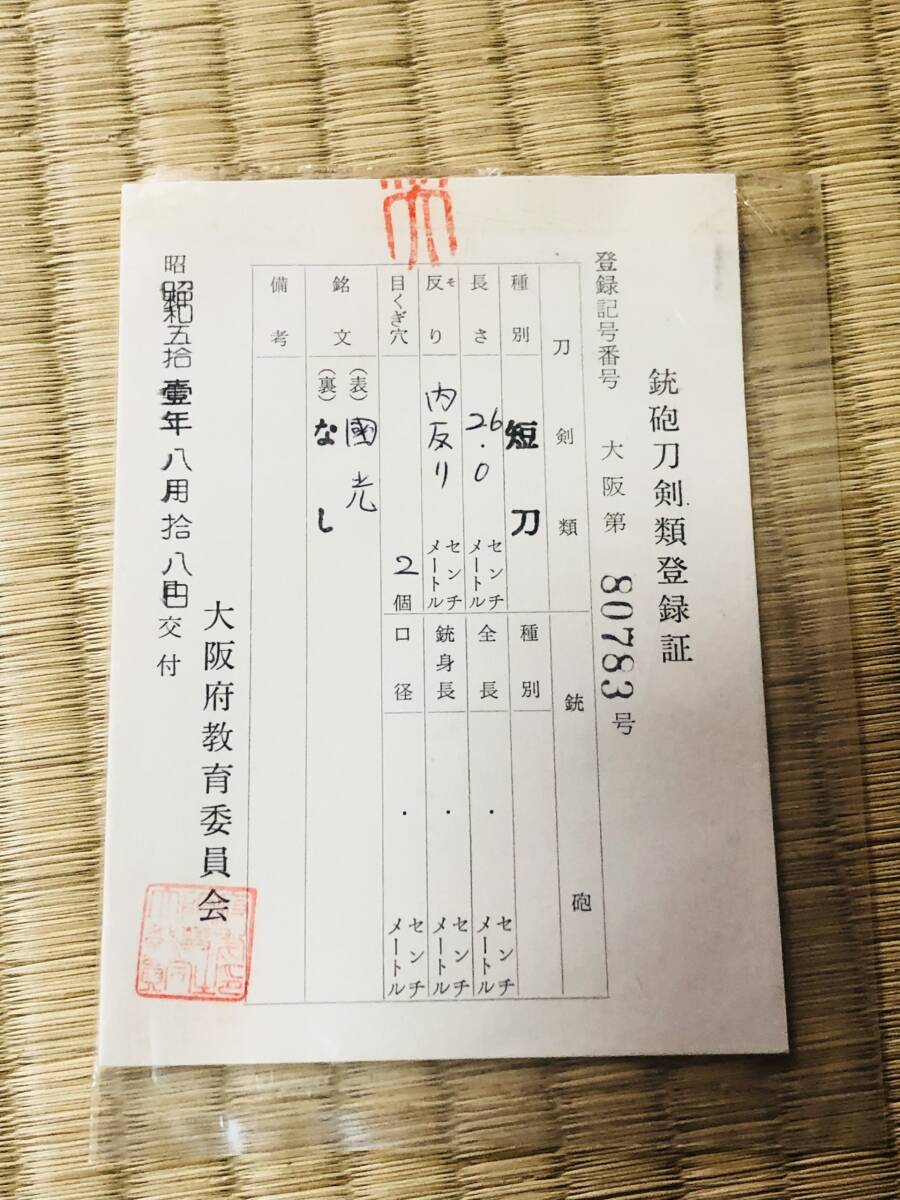 銃砲刀剣類登録証
登録記号番号 大阪第 80783 号
刀剣類
種別 短刀
長さ 26.0 センチメートル
反り モ 内反り センチメートル
目くぎ穴 2 個
銘文 (表) 國光
(裏) なし
備考
銃砲
種別
全長 ・ センチメートル
銃身長 ・ センチメートル
口径 ・ センチメートル
昭和五拾壹年八月拾八日交付
大阪府教育委員会